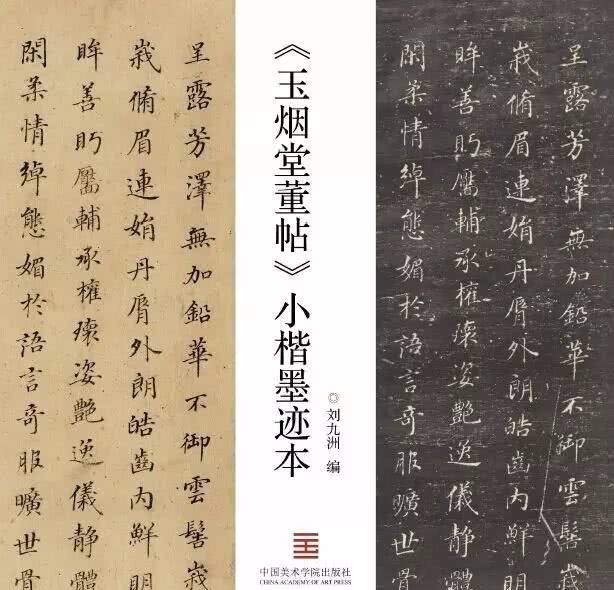 呈露芳澤無加鉛華不御雲髻峩
峩脩眉連娟丹脣外朗皓齒内鮮明
眸善眄靨輔承權瓌姿艷逸儀静體
閑柔情綽態媚於語言奇服曠世骨
《玉烟堂董帖》小楷墨迹本
◎刘九洲 编
中国美术学院出版社
CHINA ACADEMY OF ART PRESS
呈露芳澤無加鉛華不御雲髻峩
峩脩眉連娟丹脣外朗皓齒内鮮明
眸善眄靨輔承權瓌姿艷逸儀静體
閑柔情綽態媚於語言奇服曠世骨